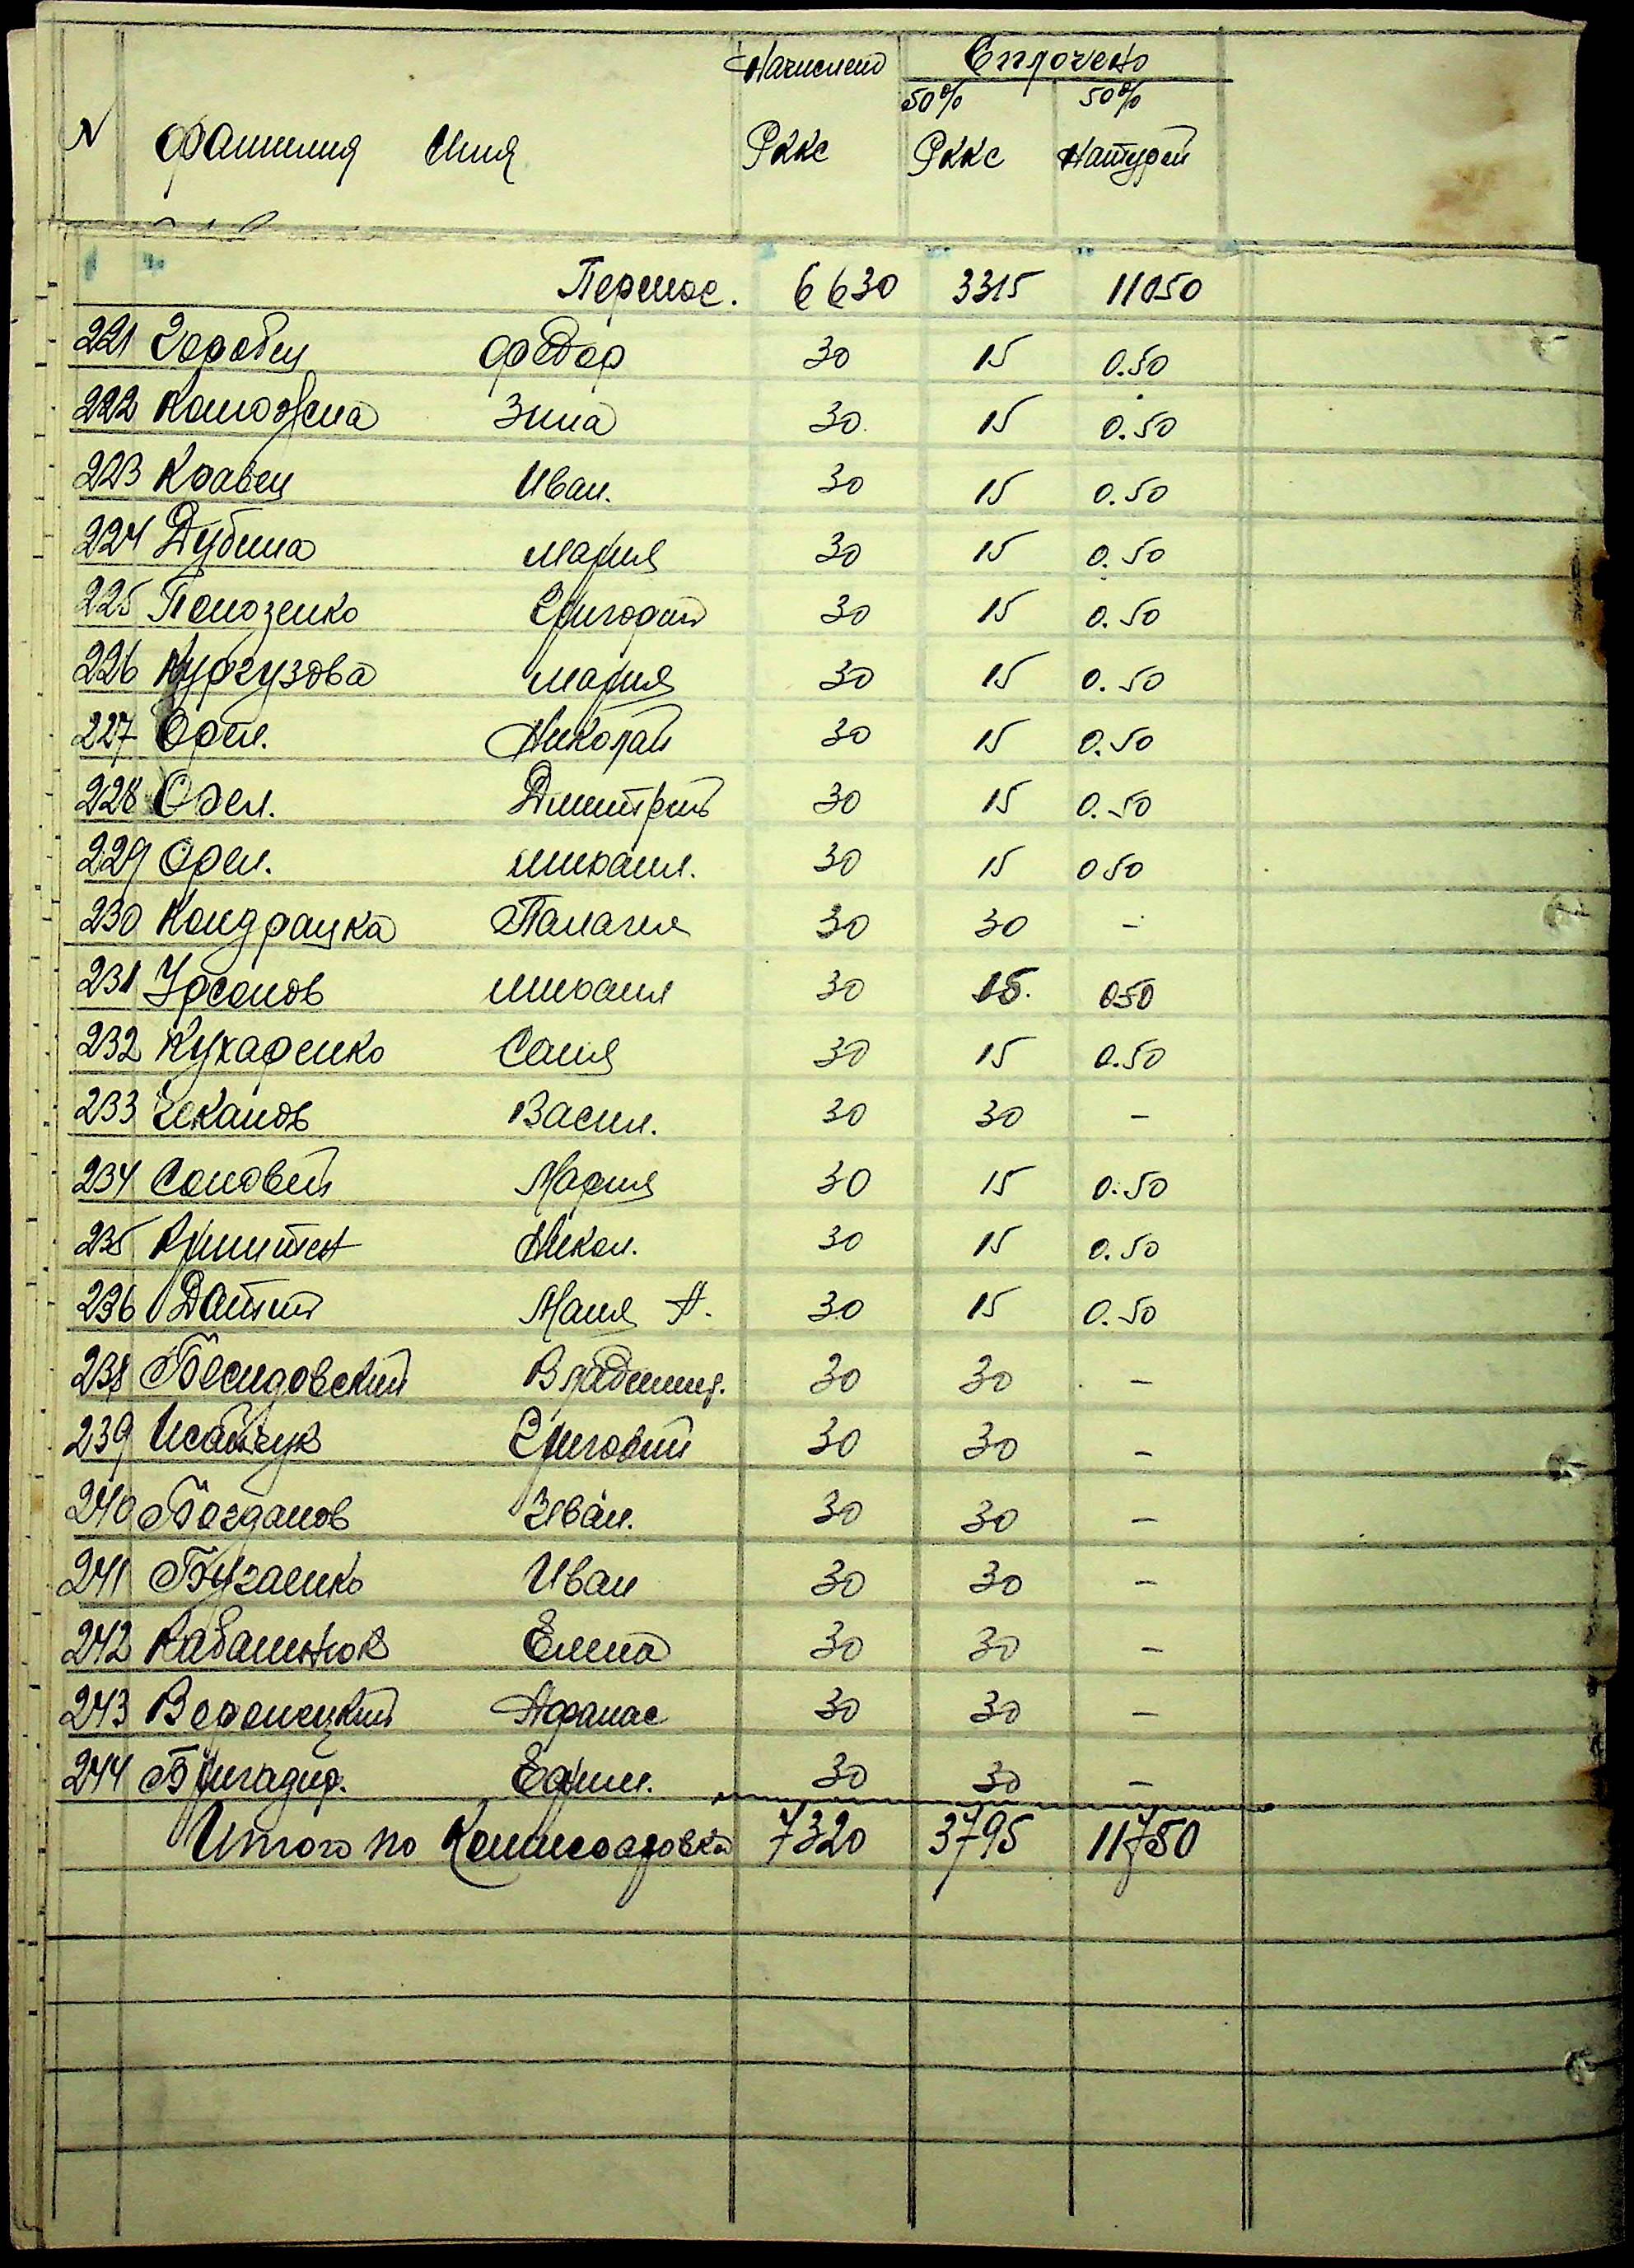 Начислено Сплочено
50% 50%
N Фамилия Имя Рккс Рккс Натурой
Перенос. 6630 3315 11050
221 Горобец Федор 30 15 0.50
222 Зина 30 15 0.50
223 Кравец Иван. 30 15 0.50
224 Дубина Мария 30 15 0.50
225 Григорий 30 15 0.50
226 Кургузова Мария 30 15 0.50
227 Орел. Николай 30 15 0.50
228 Орел. Дмитрий 30 15 0.50
229 Орел. Михаил. 30 15 050
230 Кондрацка Палагея 30 30 -
231 Урсолов Михаил 30 15. 050
232 Кухаренко Соня 30 15 0.50
233 Чеканов Васил. 30 30 -
234 Соловей Мария 30 15 0.50
235 Никол. 30 15 0.50
236 Маня А. 30 15 0.50
238 Бесидовский Владимир. 30 30 -
239 Исайчук Григорий 30 30 -
240 Богданов Иван. 30 30 -
241 Бугаенко Иван 30 30 -
242 Кабанюк Елена 30 30 -
243 Веренецкий Афанас 30 30 -
244 Бригадир. Ефим. 30 30 -
Итого по Комисаровка 7320 3795 11750